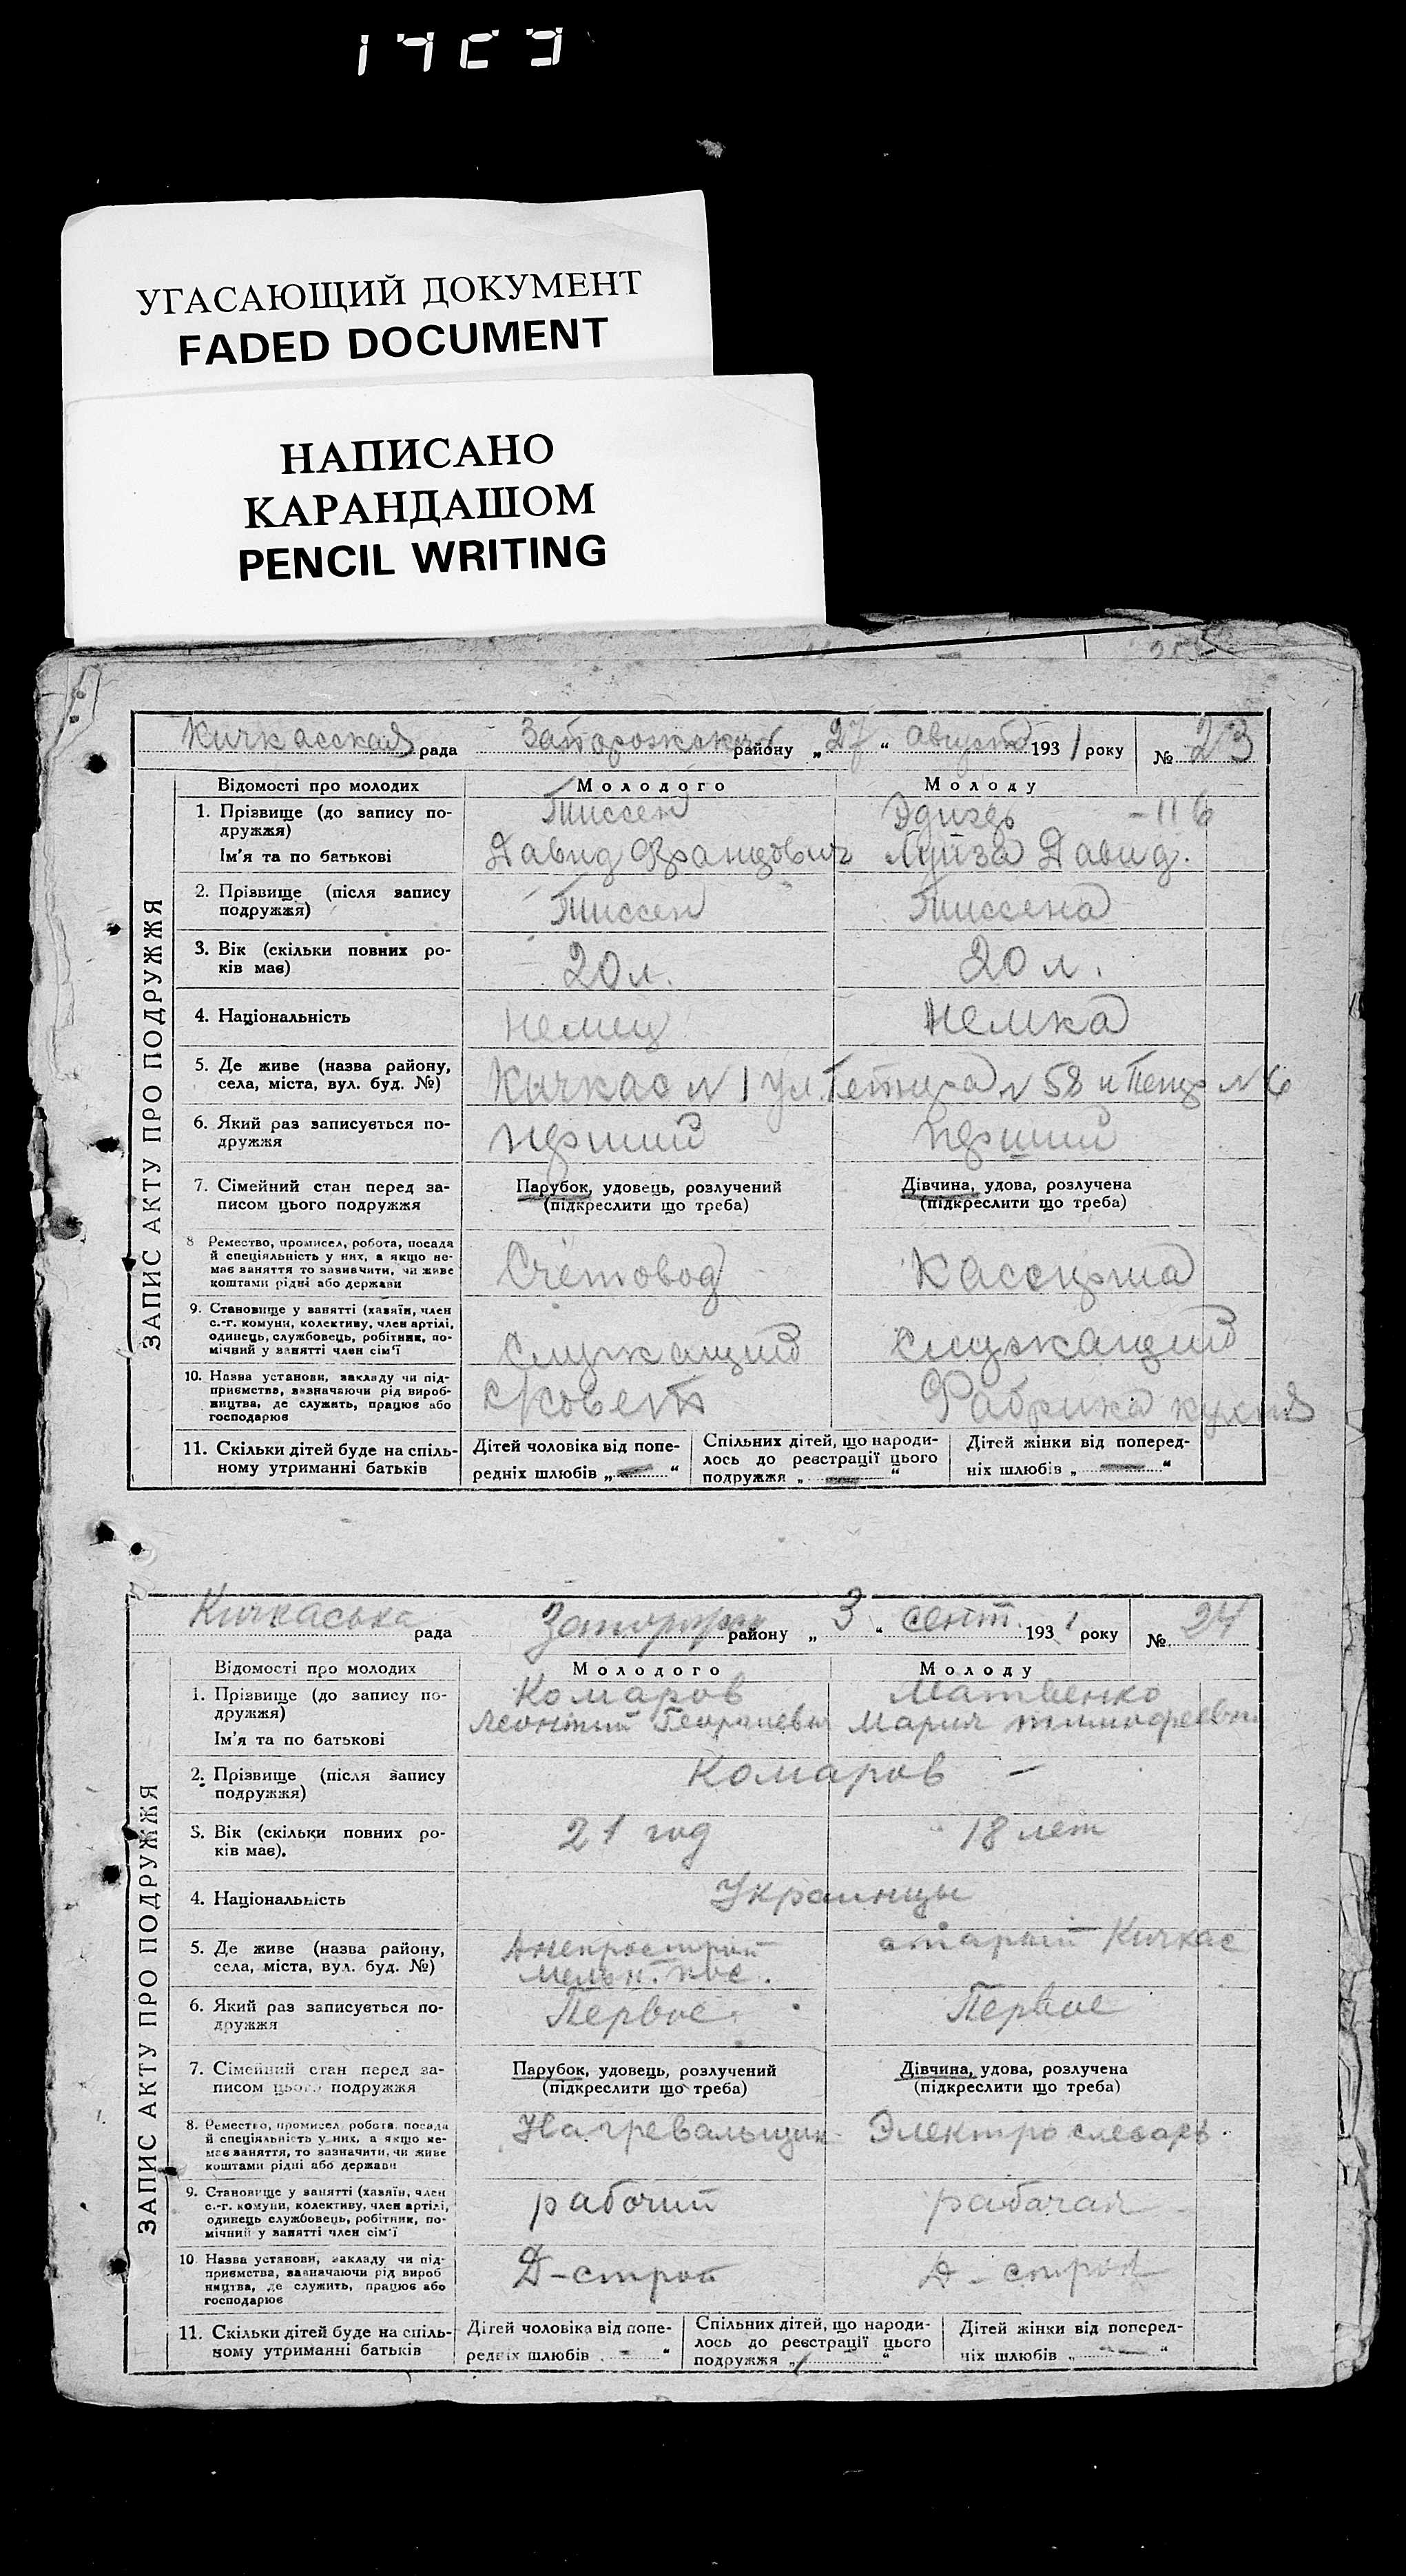 УГАСАЮЩИЙ ДОКУМЕНТ
FADED DOCUMENT
НАПИСАНО
КАРАНДАШОМ
PENCIL WRITING
Кичкасская рада Запорожский району „27“ августа 1931 року № 23
ЗАПИС АКТУ ПРО ПОДРУЖЖЯ
Відомості про молодих Молодого Молоду
1. Прізвище (до запису по- Тиссен
дружжя)
Ім'я та по батькові Давид Францович Луиза Давид.
2. Прізвище (після запису Тиссен Тиссена
подружжя)
3. Вік (скільки повних ро- 20 л. 20 л.
ків має)
4. Національність немец Немка
5. Де живе (назва району, Кичкас № 1 ул. № 58 и № 6
села, міста, вул. буд. №)
6. Який раз записується по- перший перший
дружжя
7. Сімейний стан перед за- Парубок, удовець, розлучений Дівчина, удова, розлучена
писом цього подружжя (підкреслити що треба) (підкреслити що треба)
8 Ремество, промисел, робота, посада
й спеціяльність у них, а якщо не-
має заняття то зазначити, чи живе Счетовод Кассирша
коштами рідні або держави
9. Становище у занятті (хазяїн, член
с.-г. комуни, колективу, член артілі,
одинець, службовець, робітник, по- Служащий служащий
мічний у занятті член сім'ї
10. Назва установи, закладу чи під-
приємства, зазначаючи рід вироб- Фабрика кухня
ництва, де служить, працює або
господарює
11. Скільки дітей буде на спіль- Дітей чоловіка від попе- Спільних дітей, що народи- Дітей жінки від поперед-
ному утриманні батьків редніх шлюбів „—“ лось до реєстрації цього ніх шлюбів „—“
подружжя „—“
Кичкаська рада району „3“ сент. 1931 року № 24
ЗАПИС АКТУ ПРО ПОДРУЖЖЯ
Відомості про молодих Молодого Молоду
1. Прізвище (до запису по- Комаров Матвенко
дружжя) Леонтий Георгиевич Мария тимофеевн.
Ім'я та по батькові
2. Прізвище (після запису Комаров —
подружжя)
3. Вік (скільки повних ро- 21 год 18 лет
ків має).
4. Національність Украинцы
5. Де живе (назва району, Днепрострой старый Кичкас
села, міста, вул. буд. №) Мельн. пос.
6. Який раз записується по- Первое Первое
дружжя
7. Сімейний стан перед за- Парубок, удовець, розлучений Дівчина, удова, розлучена
писом цього подружжя (підкреслити що треба) (підкреслити що треба)
8. Ремество, промисел, робота, посада Нагревальщик Электро слесарь
й спеціяльність у них, а якщо не-
має заняття, то зазначити, чи живе
коштами рідні або держави
9. Становище у занятті (хазяїн, член
с.-г. комуни, колективу, член артілі, рабочий рабочая
одинець службовець, робітник, по-
мічний у занятті член сім'ї
10 Назва установи, закладу чи під-
приємства, зазначаючи рід вироб Д-строй Д-строй
ництва, де служить, працює або
господарює
11. Скільки дітей буде на спіль- Дітей чоловіка від попе- Спільних дітей, що народи- Дітей жінки від поперед-
ному утриманні батьків редніх шлюбів „—“ лось до реєстрації цього ніх шлюбів „—“
подружжя „